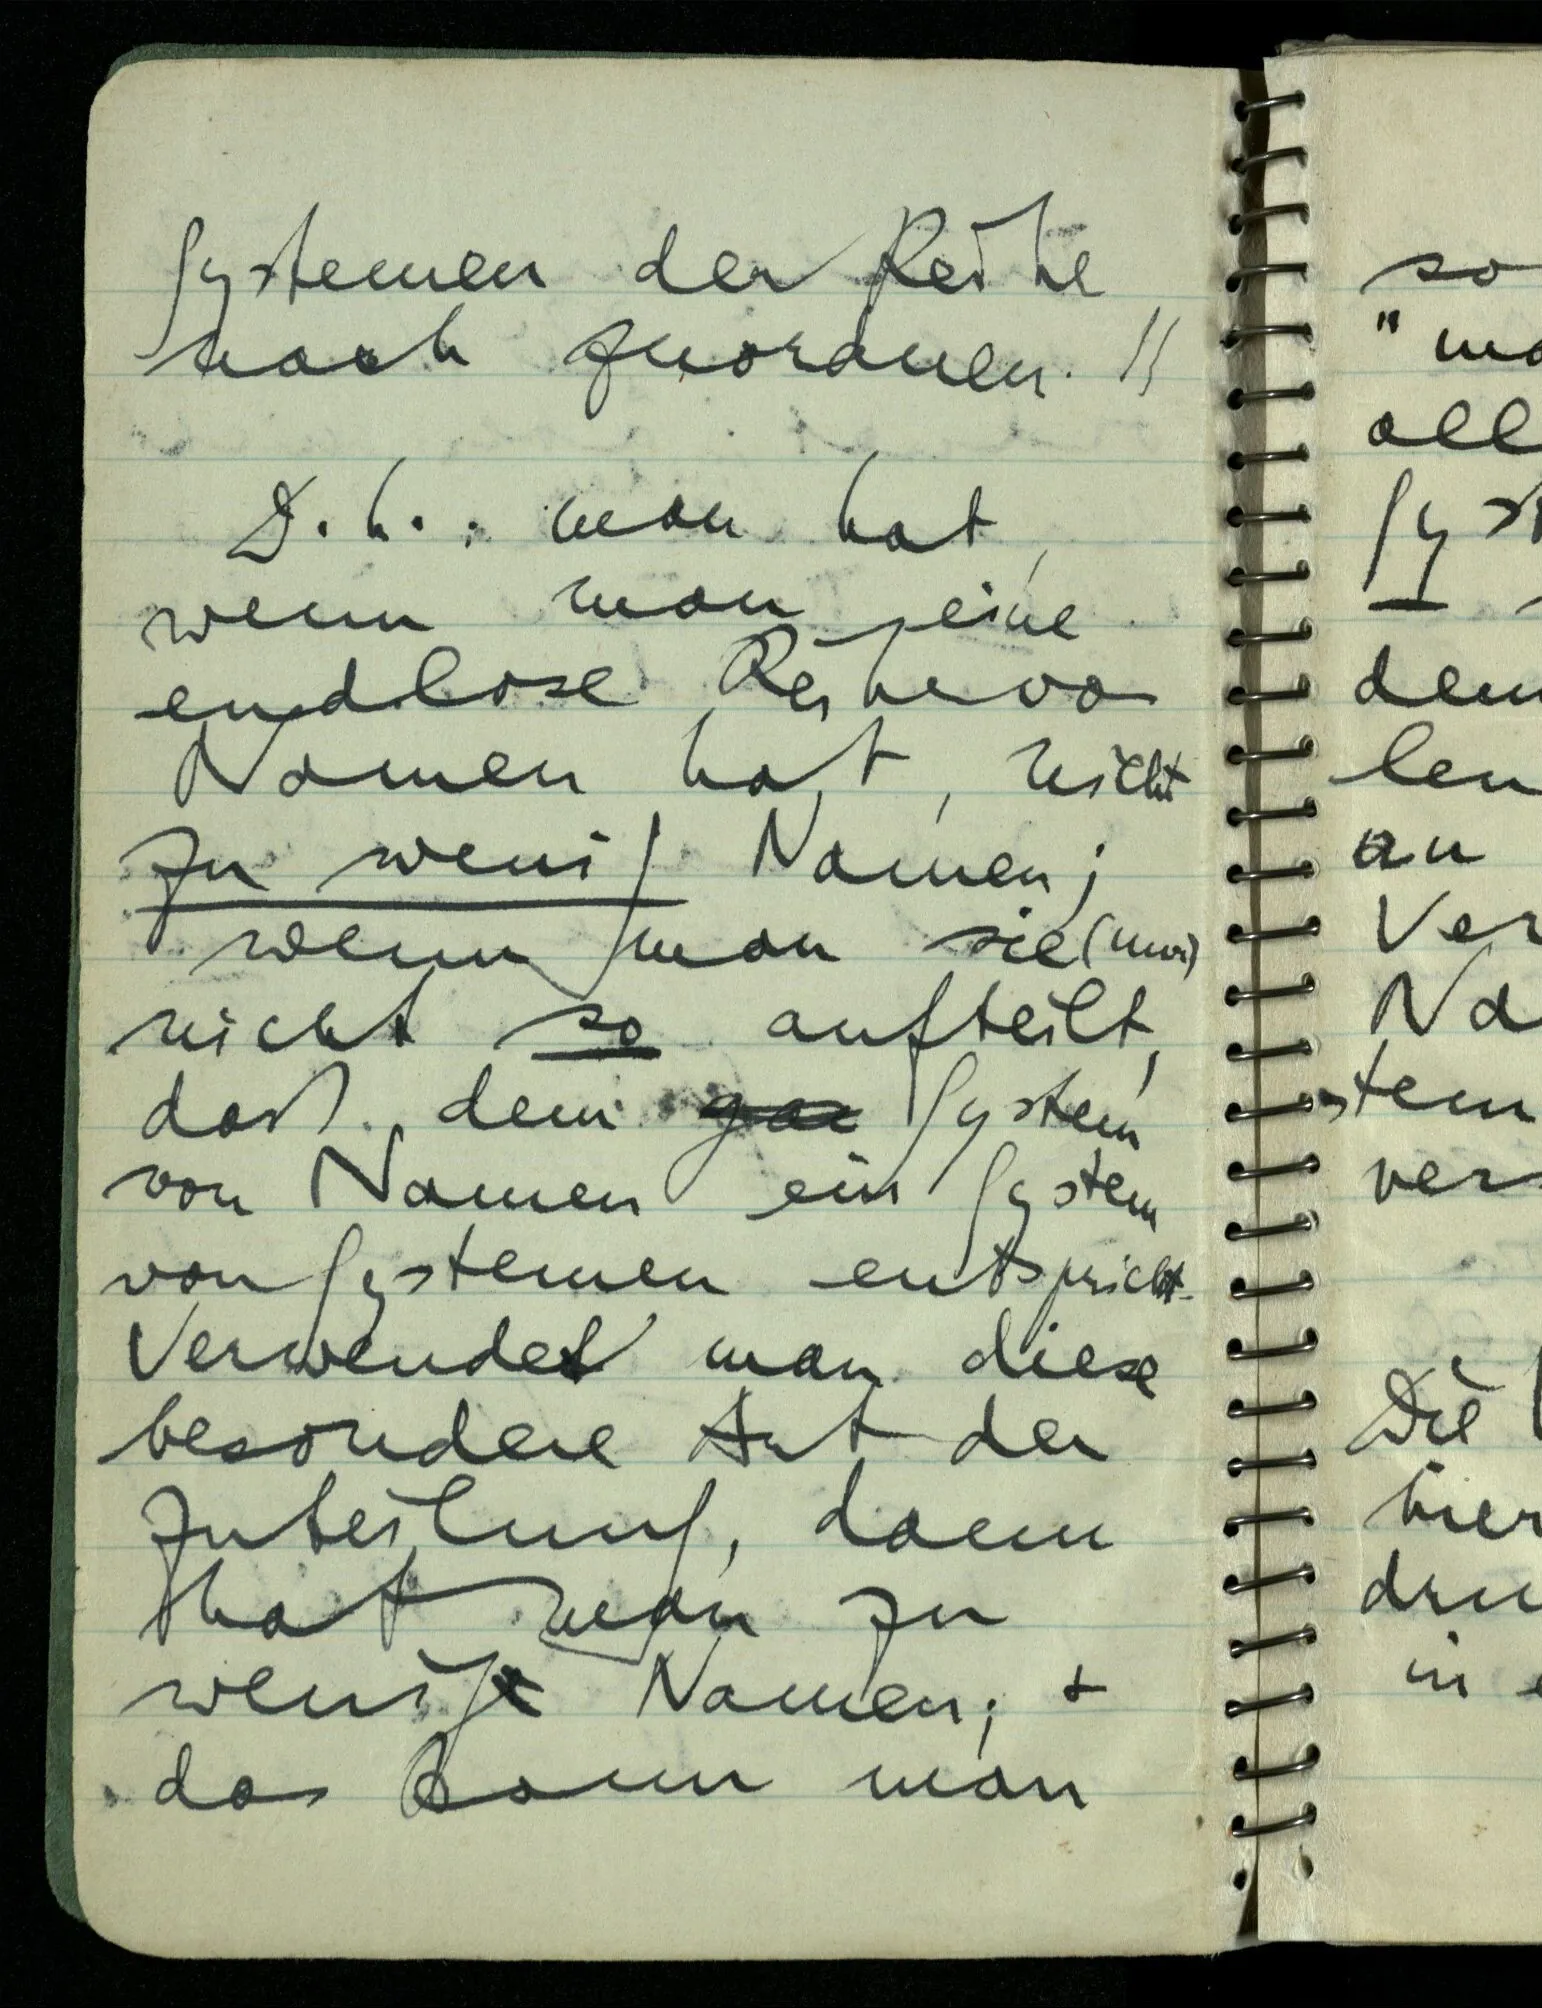 Systemen der Reihe
nach zuordnen. //
D.h.: man hat,
wenn man eine
endlose Reihe von
Namen hat, nicht
zu wenig Namen;
wenn man sie (nur)
nicht so aufteilt,
daß dem System
von Namen ein System
von Systemen entspricht.
Verwendet man diese
besondere Art der
Zuteilung, dann
hat man zu
wenig Namen; +
das kann man
so
"
all
Syst
dem
len
an
Ver
Na
stem
vers
Die
hier
dru
in